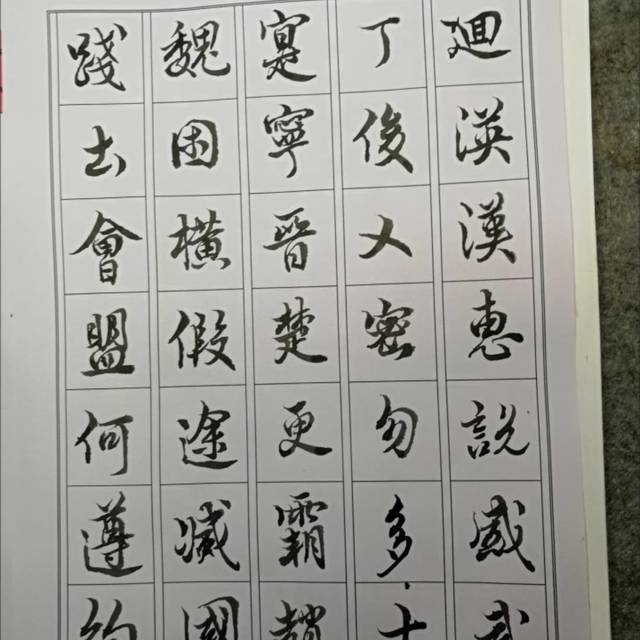 廻渶漢惠説感武
丁俊乂密勿多士
寔寧晉楚更霸趙
魏困橫假途滅國
踐土會盟何遵約